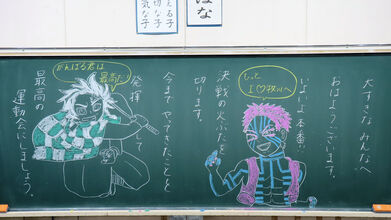 える子
切な子
気な子
はな
大すきな みんなへ
おはようございます。
いよいよ本番。
決戦の火ぶたを
切ります。
今まで やってきたことを
発揮して
最高の
運動会にしましょう。
がんばる君は
最高だ
もっと